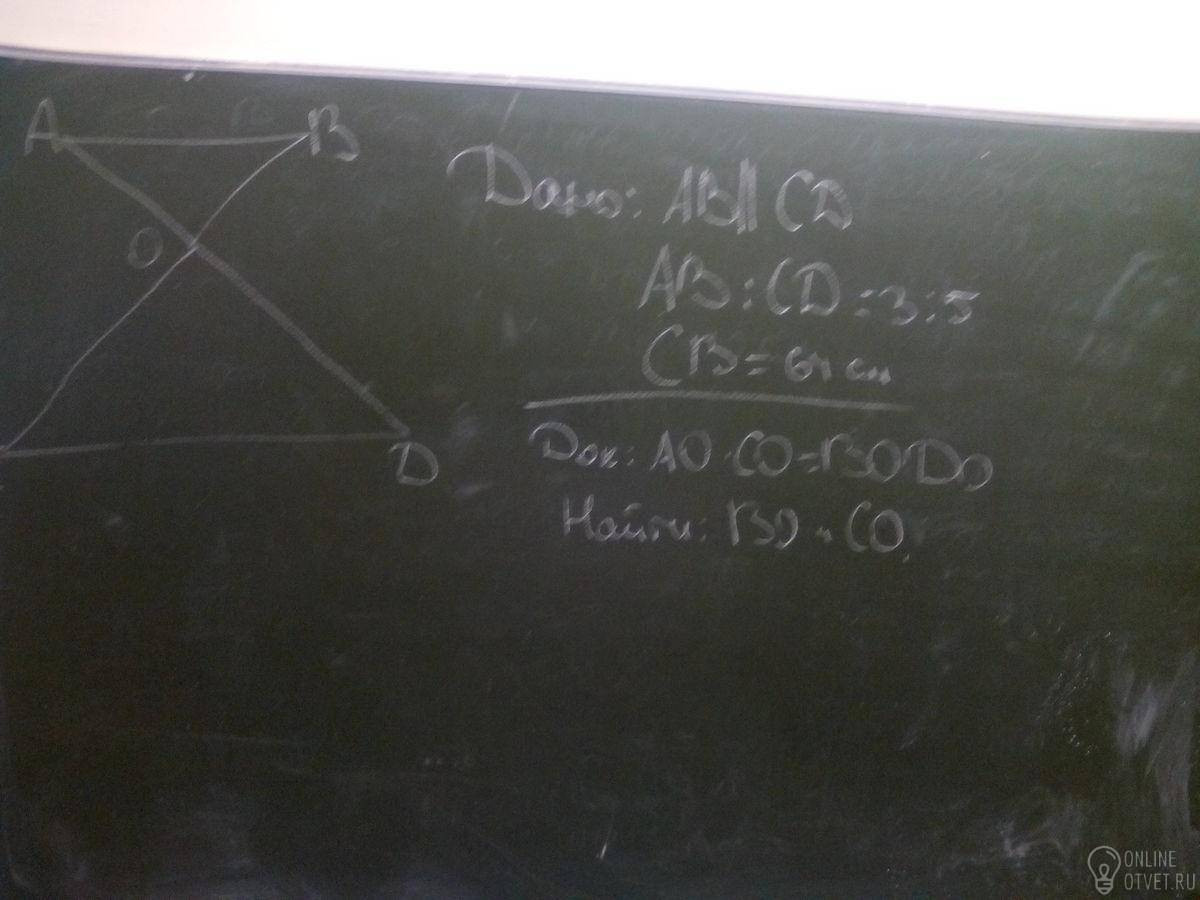 A B
O
D
Дано: AB || CD
AB : CD = 3 : 5
CB = 64 см
Док: AO · CO = BO · DO
Найти: BO и CO.
ONLINE
OTVET.RU